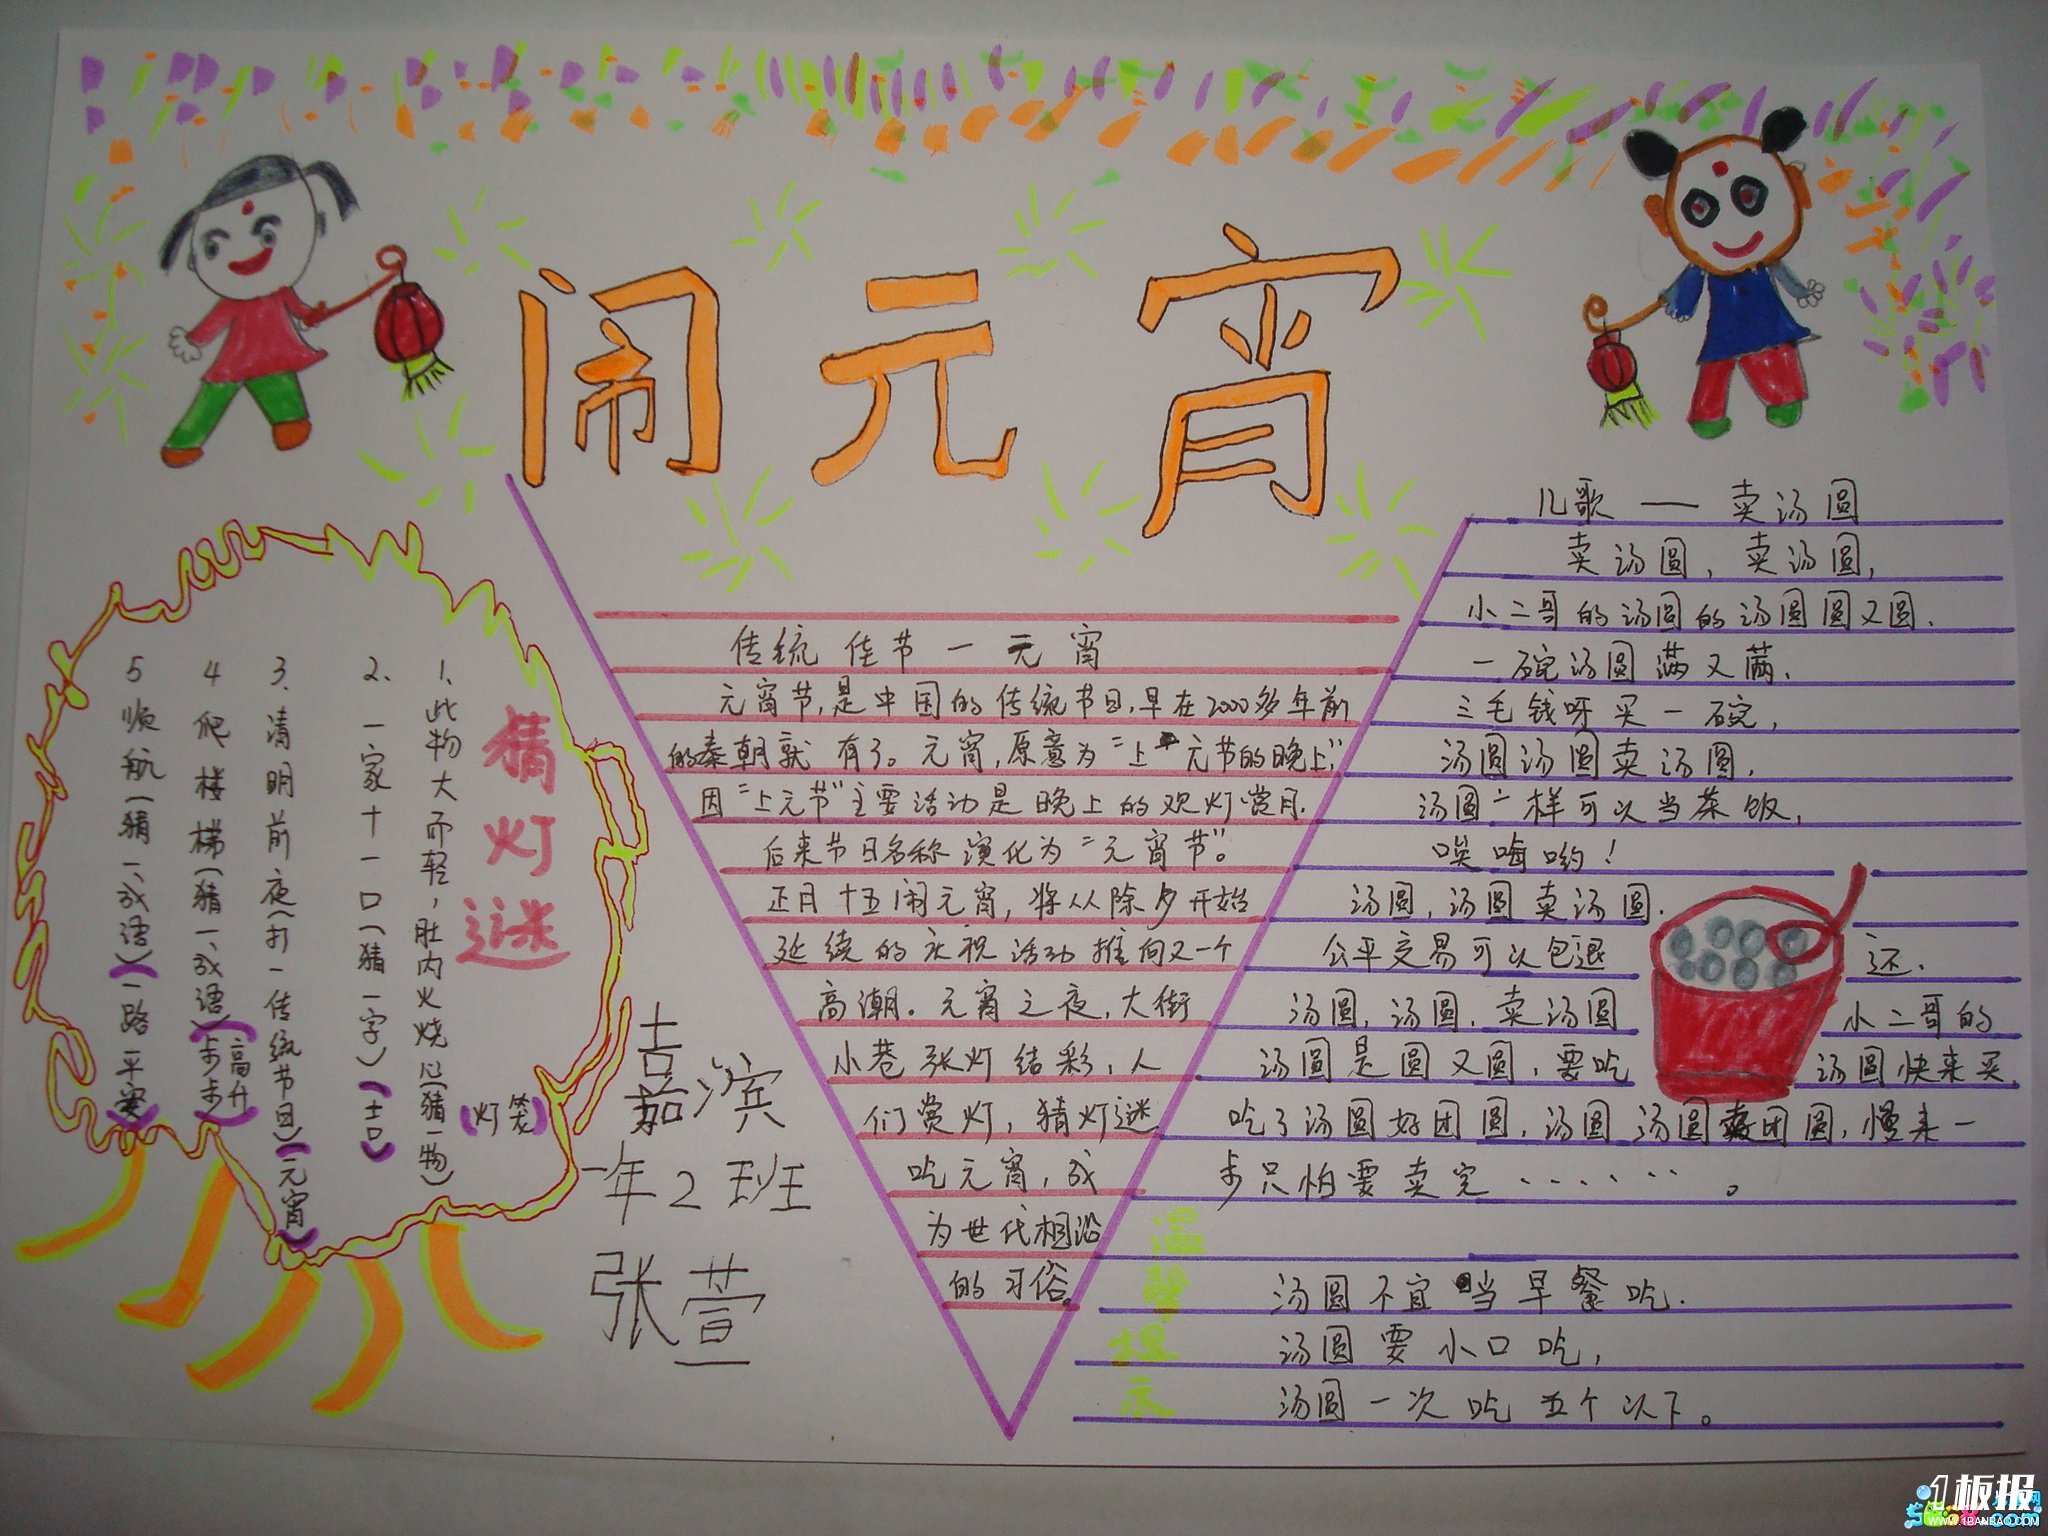 闹元宵
猜灯谜
1、此物大而轻，肚内火烧心(猜一物)
(灯笼)
2、一家十一口(猜一字)(吉)
3、清明前夜(打一传统节日)(元宵)
4 爬楼梯(猜一成语)(步步高升)
5 顺航(猜一成语)(一路平安)
嘉滨
一年2班
张萱
传统佳节一元宵
元宵节,是中国的传统节日,早在2000多年前
的秦朝就有了。元宵,原意为“上元节的晚上”,
因“上元节”主要活动是晚上的观灯赏月.
后来节日名称演化为“元宵节”。
正月十五闹元宵,将从除夕开始
延续的庆祝活动推向又一个
高潮。元宵之夜,大街
小巷张灯结彩,人
们赏灯,猜灯谜
吃元宵,成
为世代相沿
的习俗。
儿歌——卖汤圆
卖汤圆,卖汤圆,
小二哥的汤圆的汤圆圆又圆.
一碗汤圆满又满.
三毛钱呀买一碗,
汤圆汤圆卖汤圆.
汤圆一样可以当茶饭,
唉嗨哟!
汤圆,汤圆卖汤圆.
公平交易可以包退还.
汤圆,汤圆,卖汤圆小二哥的
汤圆是圆又圆,要吃汤圆快来买.
吃了汤圆好团圆,汤圆汤圆卖团圆,慢来一
步只怕要卖完······。
温馨提示
汤圆不宜当早餐吃.
汤圆要小口吃,
汤圆一次吃五个以下。
1板报
WWW.1BANBAO.COM